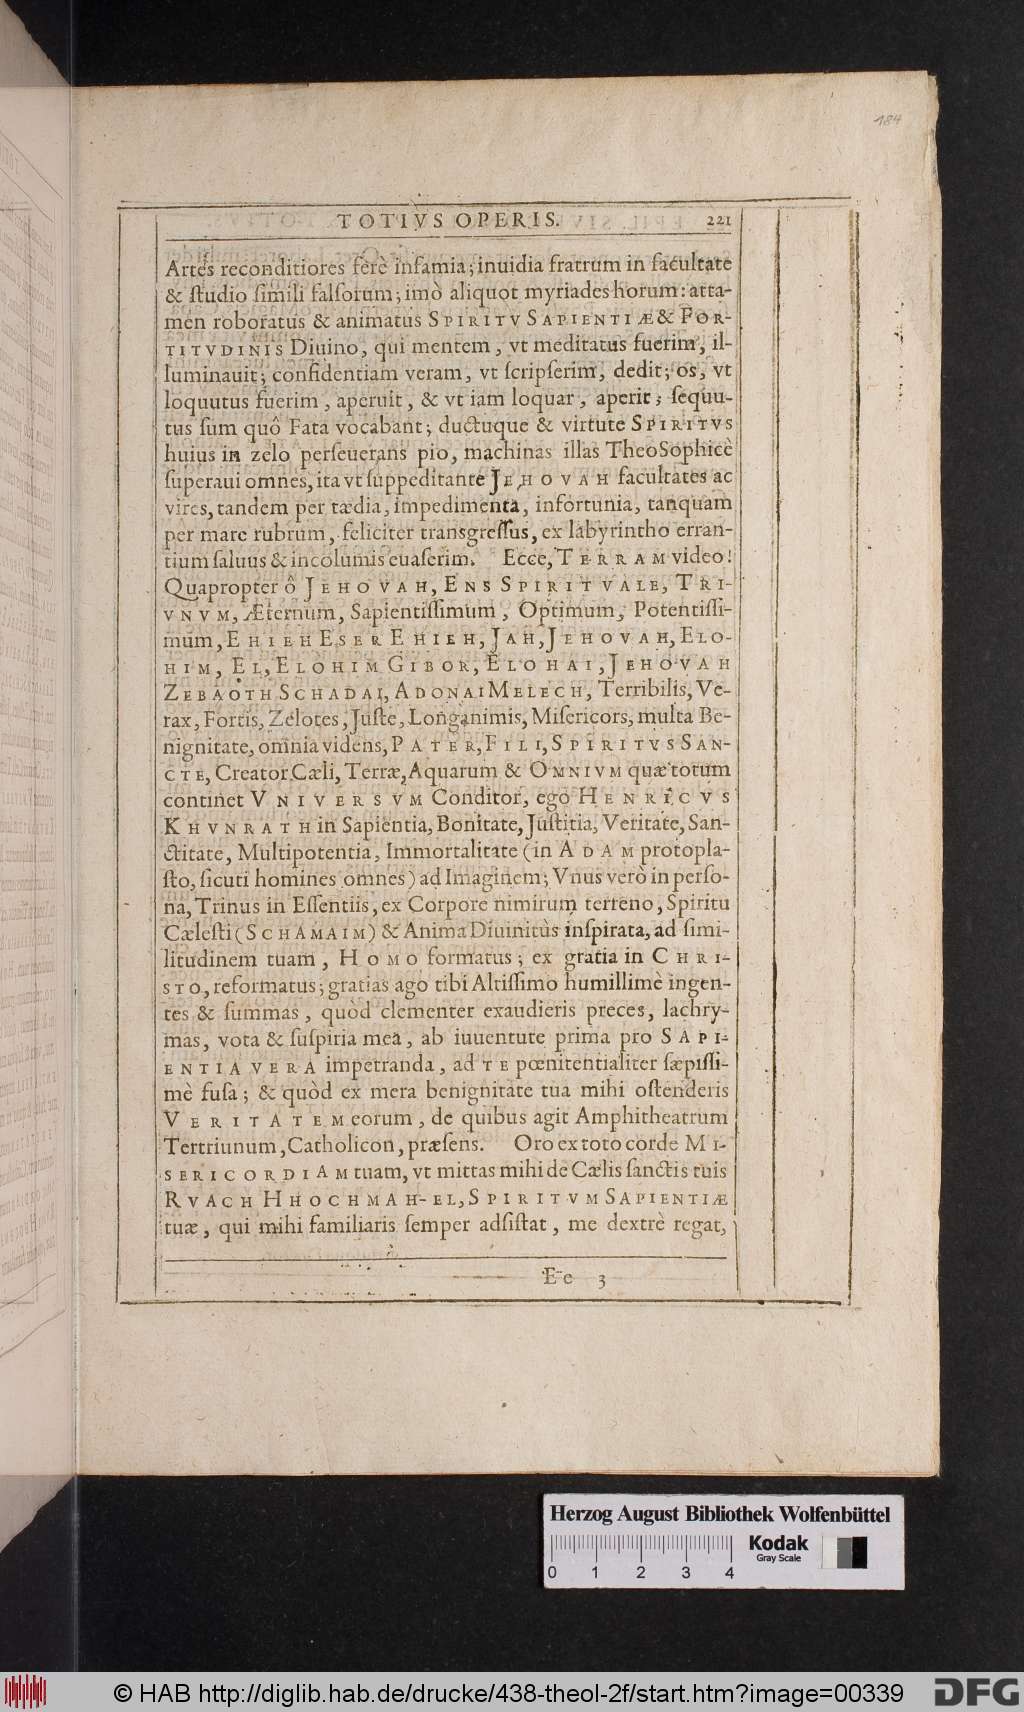 184
TOTIVS OPERIS. 221
Artes reconditiores ferè infamia; inuidia fratrum in facultate
& ſtudio ſimili falſorum; imò aliquot myriades horum: atta-
men roboratus & animatus SPIRITV SAPIENTIÆ & FOR-
TITVDINIS Diuino, qui mentem, vt meditatus fuerim, il-
luminauit; confidentiam veram, vt ſcripſerim, dedit; os, vt
loquutus fuerim, aperuit, & vt iam loquar, aperit; ſequu-
tus ſum quô Fata vocabant; ductuque & virtute SPIRITVS
huius in zelo perſeuerans pio, machinas illas TheoSophicè
ſuperaui omnes, ita vt ſuppeditante JEHOVAH facultates ac
vires, tandem per tædia, impedimenta, infortunia, tanquam
per mare rubrum, feliciter transgreſſus, ex labyrintho erran-
tium ſaluus & incolumis euaſerim. Ecce, TERRAM video!
Quapropter ô JEHOVAH, ENS SPIRITVALE, TRI-
VNVM, Æternum, Sapientiſſimum, Optimum, Potentiſſi-
mum, EHIEH ESER EHIEH, JAH, JEHOVAH, ELO-
HIM, EL, ELOHIM GIBOR, ELOHAI, JEHOVAH
ZEBAOTH SCHADAI, ADONAI MELECH, Terribilis, Ve-
rax, Fortis, Zelotes, Juſte, Longanimis, Miſericors, multa Be-
nignitate, omnia videns, PATER, FILI, SPIRITVS SAN-
CTE, Creator Cæli, Terræ, Aquarum & OMNIVM quæ totum
continet VNIVERSVM Conditor, ego HENRICVS
KHVNRATH in Sapientia, Bonitate, Juſtitia, Veritate, San-
ctitate, Multipotentia, Immortalitate (in ADAM protopla-
ſto, ſicuti homines omnes) ad Imaginem; Vnus verò in perſo-
na, Trinus in Eſſentiis, ex Corpore nimirum terreno, Spiritu
Cæleſti (SCHAMAIM) & Anima Diuinitùs inſpirata, ad ſimi-
litudinem tuam, HOMO formatus; ex gratia in CHRI-
STO, reformatus; gratias ago tibi Altiſſimo humillimè ingen-
tes & ſummas, quòd clementer exaudieris preces, lachry-
mas, vota & ſuſpiria mea, ab iuuentute prima pro SAPI-
ENTIA VERA impetranda, ad TE pœnitentialiter ſæpiſſi-
mè fuſa; & quòd ex mera benignitate tua mihi oſtenderis
VERITATEM eorum, de quibus agit Amphitheatrum
Tertriunum, Catholicon, præſens. Oro ex toto corde MI-
SERICORDIAM tuam, vt mittas mihi de Cælis ſanctis tuis
RVACH HHOCHMAH-EL, SPIRITVM SAPIENTIÆ
tuæ, qui mihi familiaris ſemper adſiſtat, me dextrè regat,
Ee 3
Herzog August Bibliothek Wolfenbüttel
0 1 2 3 4
Kodak
Gray Scale
© HAB http://diglib.hab.de/drucke/438-theol-2f/start.htm?image=00339
DFG